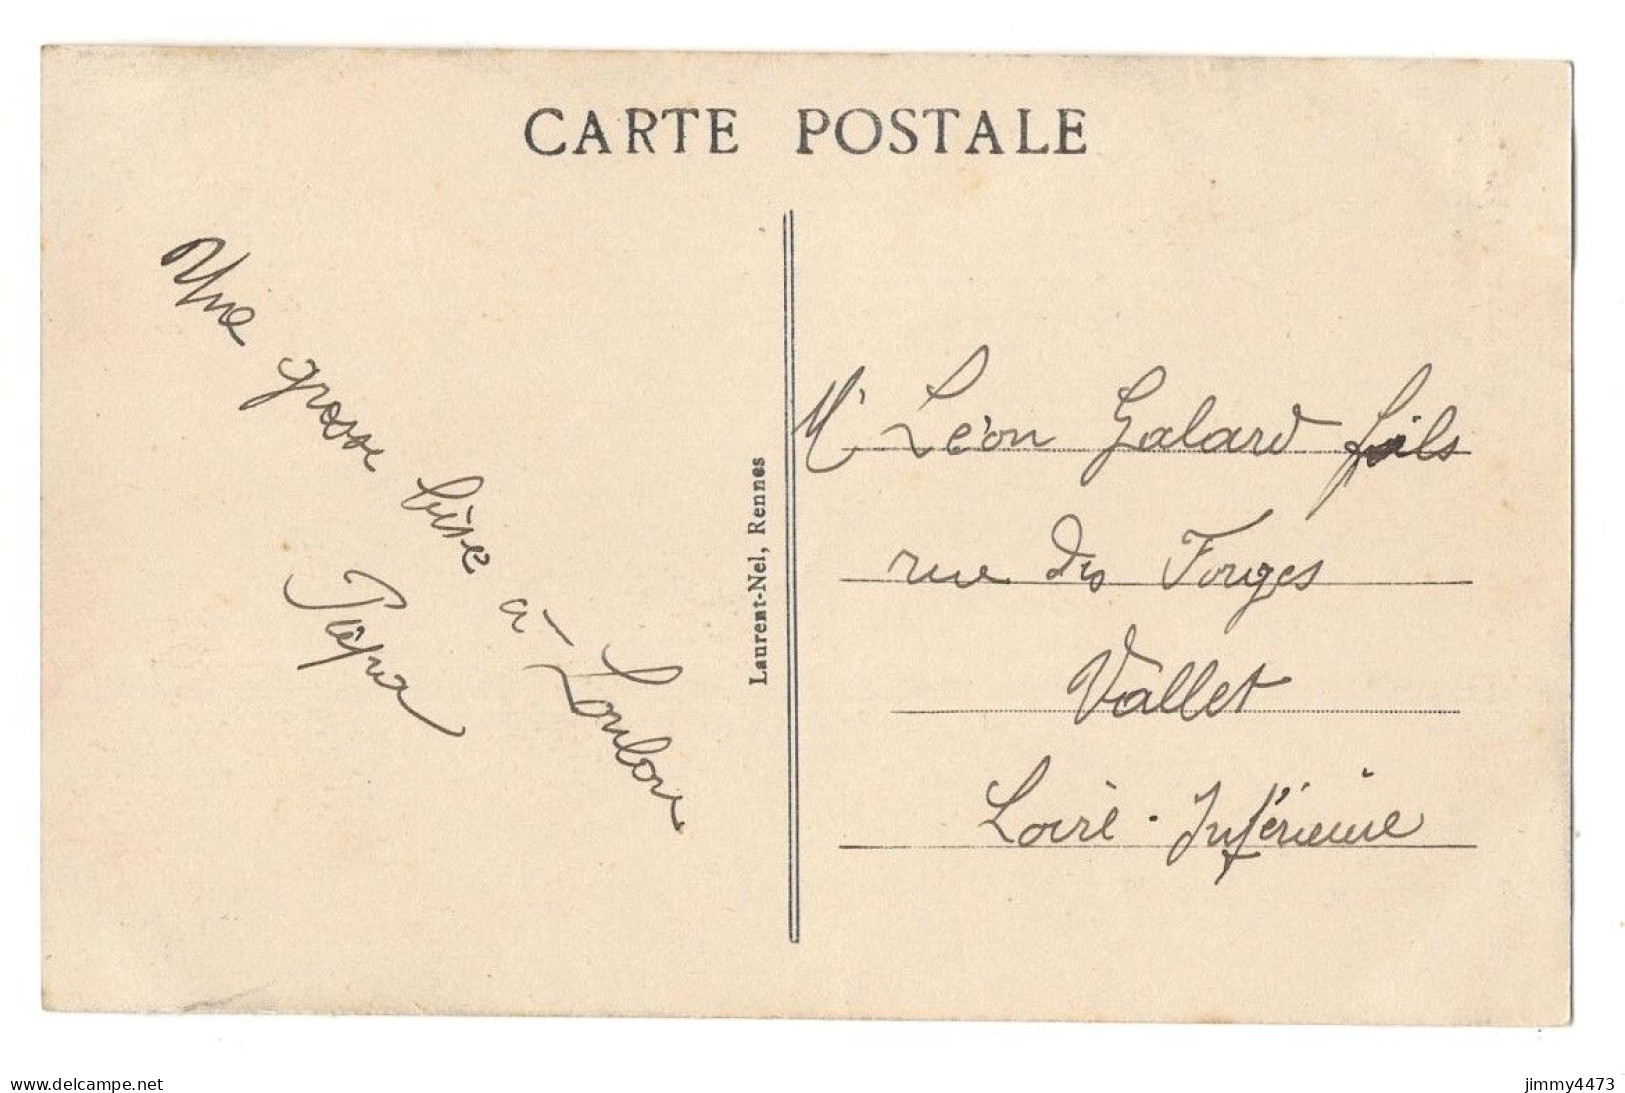 CARTE POSTALE
Une grosse bise à Loulou
Laurent-Nel, Rennes
Mr Léon Galard fils
rue des Forges
Vallet
Loire-Inférieure
www.delcampe.net
jimmy4473